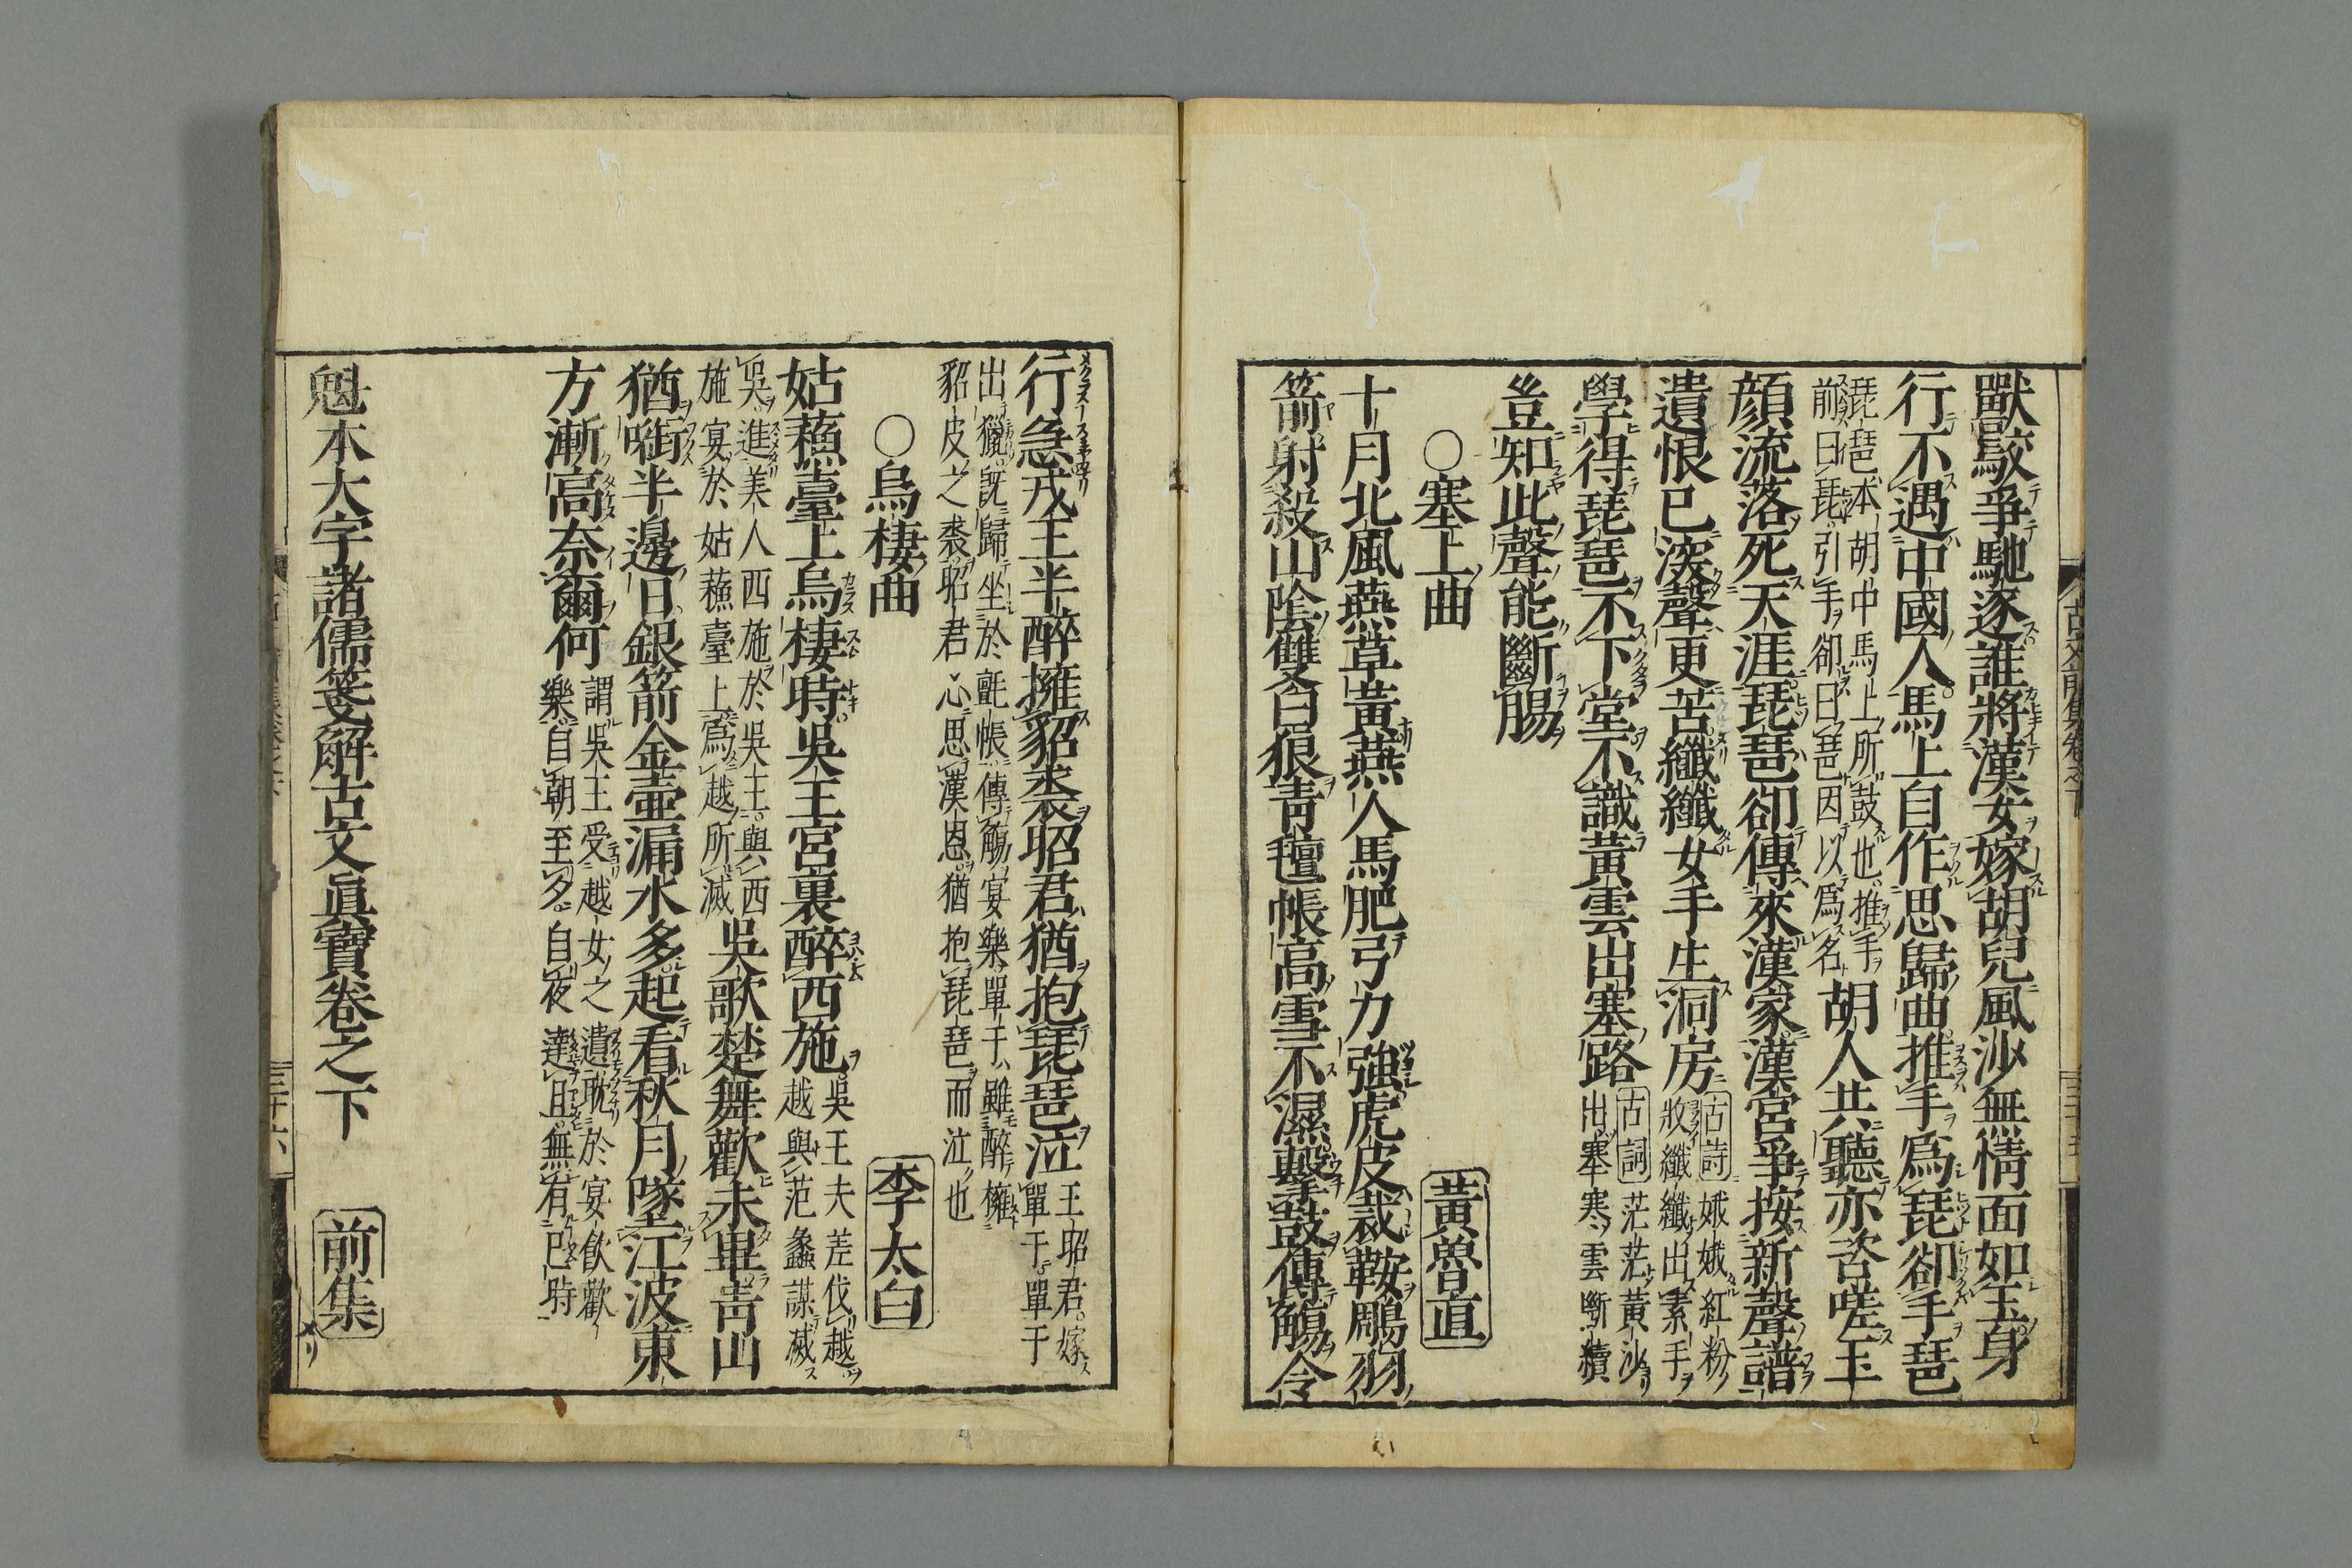 獸駮爭馳逐誰將漢女嫁胡兒風沙無情面如玉身
行不遇中國人馬上自作思歸曲推手爲琵卻手琶
琵琶本胡中馬上所鼓也推手
前曰琵引手卻曰琶因以爲名
胡人共聽亦咨嗟玉
顏流落死天涯琵琶卻傳來漢家漢宮爭按新聲譜
遺恨已深聲更苦纖纖女手生洞房
古詩娥娥紅粉
妝纖纖出素手
學得琵琶不下堂不識黃雲出塞路
古詞茫茫黃沙
出塞寒雲斷續
豈知此聲能斷腸
〇塞上曲 黃魯直
十月北風燕草黃燕人馬肥弓力強虎皮裁鞍鵰羽
箭射殺山陰雙白狼青氊帳高雪不濕擊鼓傳觴令
行急戎王半醉擁貂裘昭君猶抱琵琶泣
王昭君嫁
單于單于
出獵既歸坐於氈帳傳觴宴樂單于雖醉擁
貂皮之裘昭君心思漢恩猶抱琵琶而泣也
〇烏棲曲 李太白
姑蘓臺上烏棲時吳王宮裏醉西施
吳王夫差伐越
越與范蠡謀滅
吳進美人西施於吳王與西
施宴於姑蘓臺上爲越所滅
吳歌楚舞歡未畢青山
猶啣半邊日銀箭金壺漏水多起看秋月墜江波東
方漸高奈爾何
謂吳王受越女之遺耽於宴飲歡
樂自朝至夕自夜達旦無有已時
魁本大字諸儒箋解古文眞寶卷之下 前集